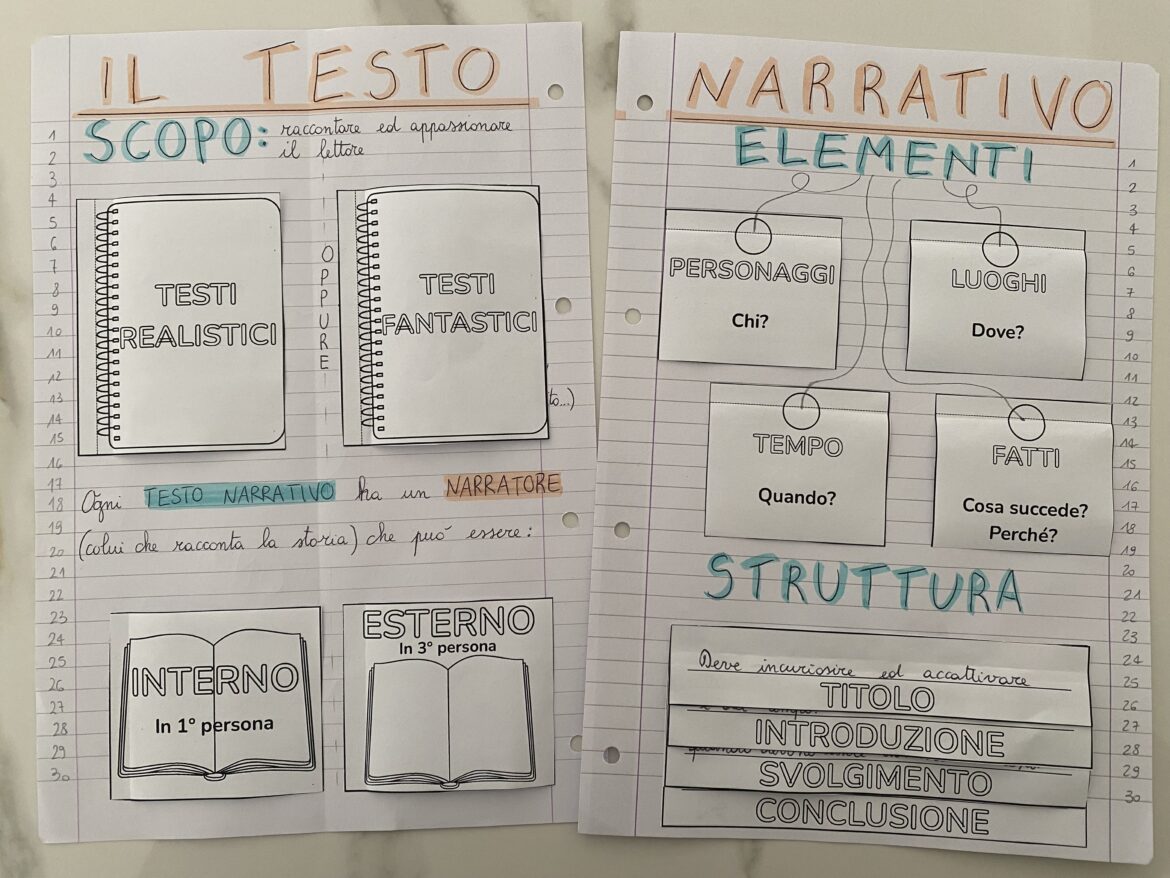 IL TESTO
SCOPO: raccontare ed appassionare
il lettore
1
2
3
4
5
6
7
8
9
10
11
12
13
14
15
16
17
18
19
20
21
22
23
24
25
26
27
28
29
30
TESTI
REALISTICI
OPPURE
TESTI
FANTASTICI
to...)
Ogni TESTO NARRATIVO ha un NARRATORE
(colui che racconta la storia) che può essere:
INTERNO
In 1° persona
ESTERNO
In 3° persona
NARRATIVO
ELEMENTI
PERSONAGGI
Chi?
LUOGHI
Dove?
TEMPO
Quando?
FATTI
Cosa succede?
Perché?
STRUTTURA
Deve incuriosire ed accattivare
TITOLO
INTRODUZIONE
SVOLGIMENTO
CONCLUSIONE
1
2
3
4
5
6
7
8
9
10
11
12
13
14
15
16
17
18
19
20
21
22
23
24
25
26
27
28
29
30